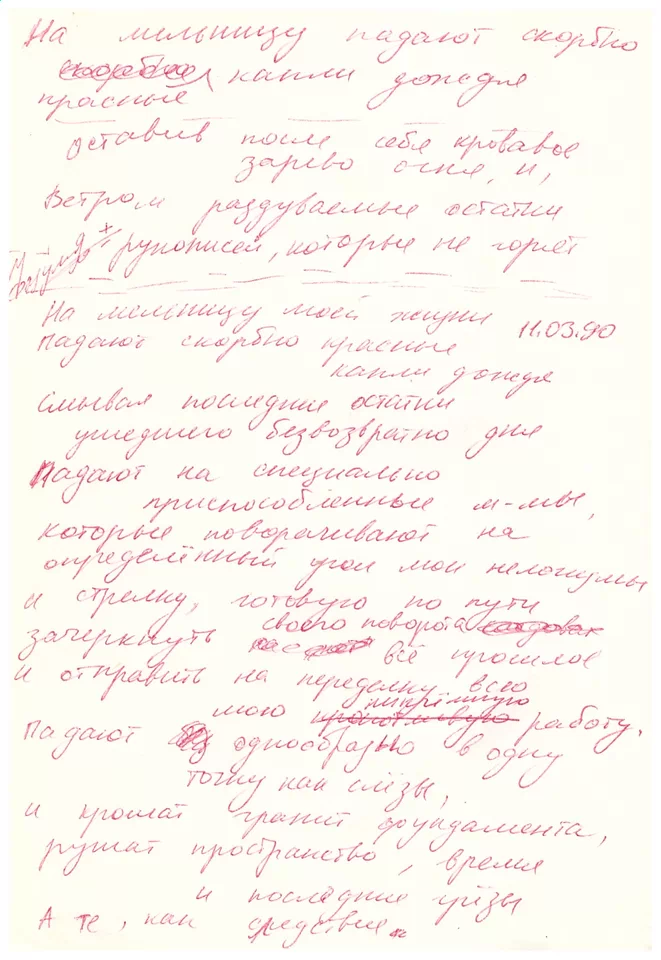 На мельницу падают скорбно
скорбно капли дождя
красные
оставив после себя кровавое
зарево огня, и,
Ветром раздуваемые остатки
рукописей, которые не горят
На мельницу моей жизни
11.03.90
падают скорбно красные
капли дождя
смывая последние остатки
ушедшего безвозвратно дня
Падают на специально
приспособленные м-мы,
которые поворачивают на
определённый угол мои
и стрелку, готовую по пути
своего поворота
зачеркнуть всё прошлое
и отправить на переделку всю
мою работу.
Падают однообразно в одну
точку как слёзы,
и кромат гранит фундамента,
рушат пространство, время
и последние грёзы
А те, как следствие..